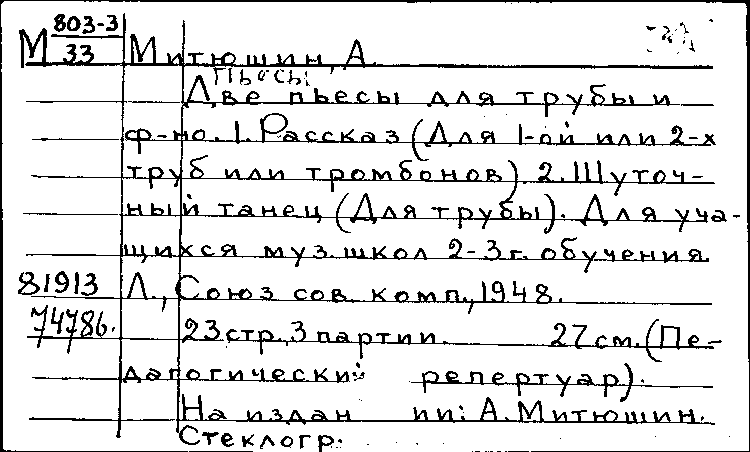 М 803-3
33
Митюшин, А.
Пьесы
Две пьесы для трубы и
ф-но. 1. Рассказ (Для 1-ой или 2-х
труб или тромбонов) 2. Шуточ-
ный танец (Для трубы). Для уча-
щихся муз. школ 2-3 г. обучения.
81913 Л., Союз сов. комп., 1948.
74786. 23 стр., 3 партии. 27 см. (Пе-
дагогический репертуар).
На издан ии: А. Митюшин.
Стеклогр.